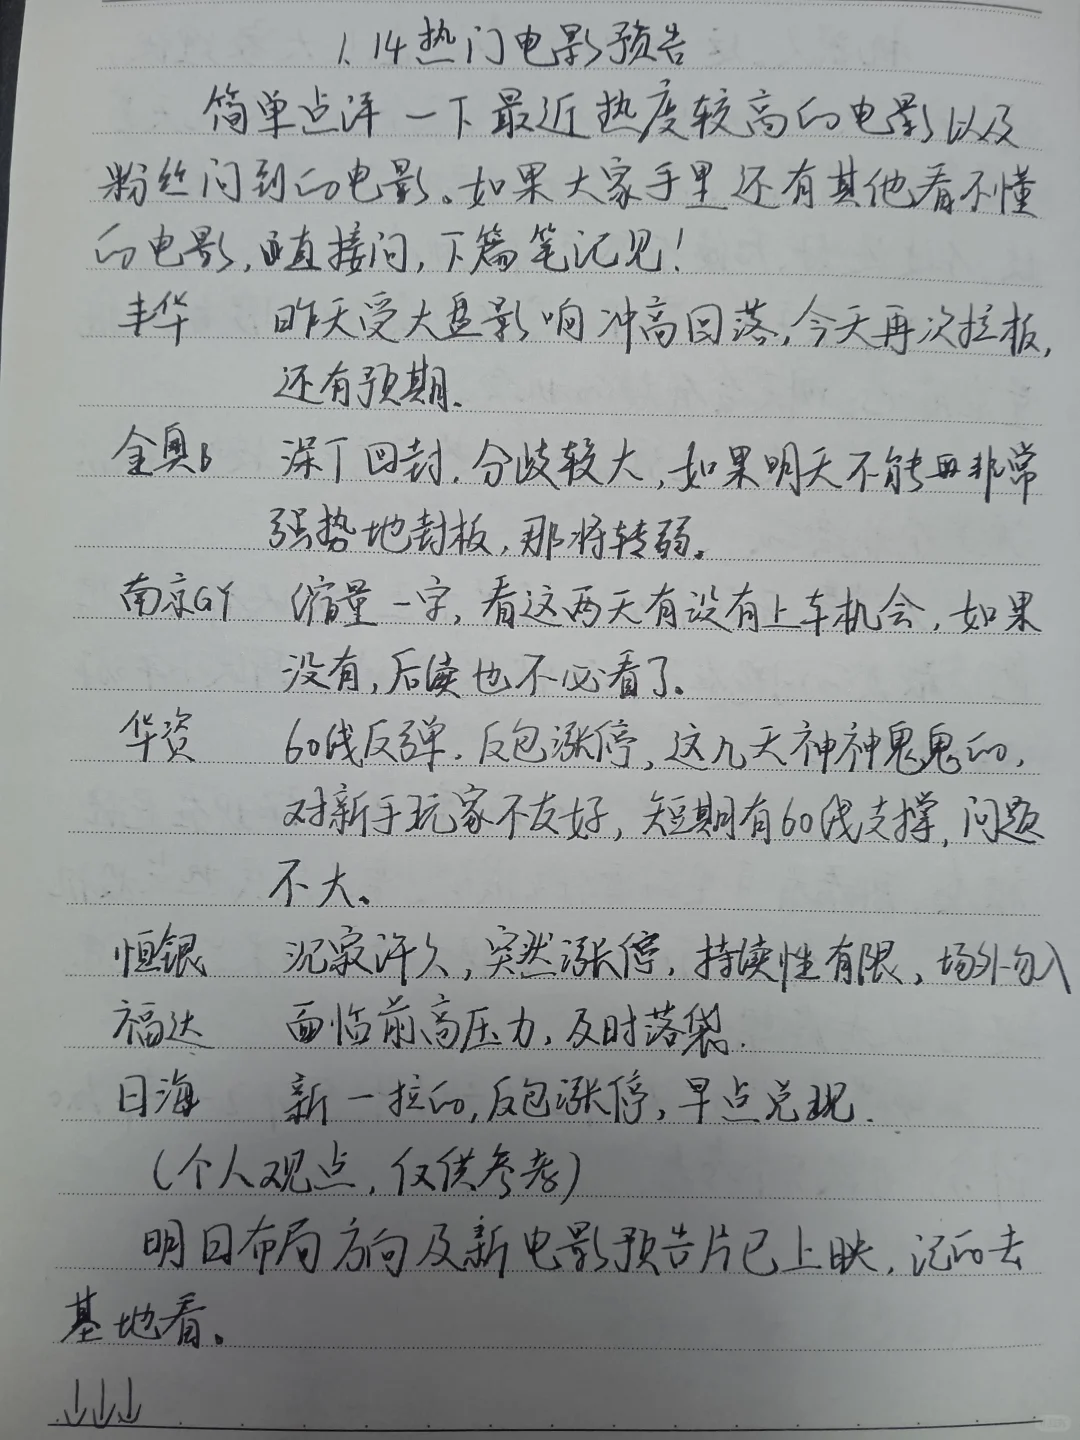 1.14热门电影预告
简单点评一下最近热度较高的电影以及
粉丝问到的电影。如果大家手里还有其他看不懂
的电影,直接问,下篇笔记见!
丰华 昨天受大盘影响冲高回落,今天再次拉板,
还有预期.
金奥B 深丁回封.分歧较大,如果明天不能再非常
强势地封板,那将转弱。
南京GY 缩量一字,看这两天有没有上车机会,如果
没有,后续也不必看了。
华资 60线反弹.反包涨停,这几天神神鬼鬼的,
对新手玩家不友好,短期有60线支撑,问题
不大。
恒银 沉寂许久,突然涨停,持续性有限,场外勿入
福达 面临前高压力,及时落袋.
日海 新一拉的,反包涨停,早点兑现.
(个人观点,仅供参考)
明日布局方向及新电影预告片已上映,记的去
基地看。
↓↓↓